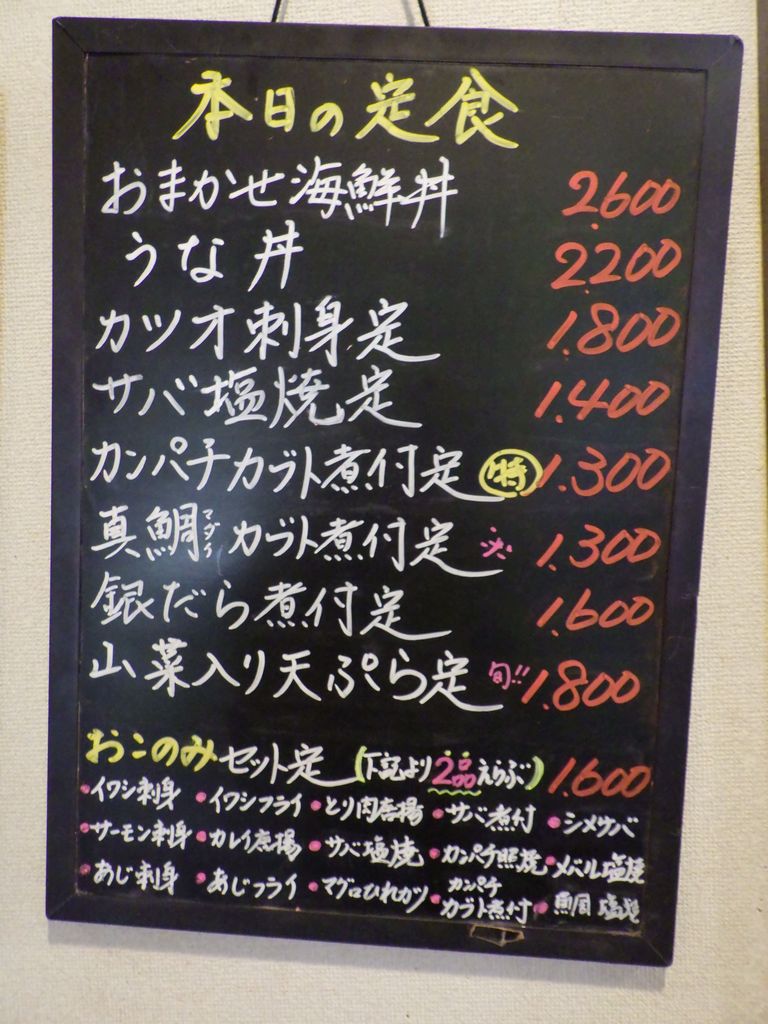 本日の定食
おまかせ海鮮丼 2.600
うな丼 2.200
カツオ刺身定 1.800
サバ塩焼定 1.400
カンパチカブト煮付定 1.300
真鯛 マダイ カブト煮付定 1.300
銀だら煮付定 1.600
山菜入り天ぷら定 旬!! 1.800
おこのみセット定 (下記より2品えらぶ) 1.600
・イワシ刺身 ・イワシフライ ・とり肉唐揚 ・サバ煮付 ・シメサバ
・サーモン刺身 ・カレイ唐揚 ・サバ塩焼 ・カンパチ照焼 ・メバル塩焼
・あじ刺身 ・あじフライ ・マグロひれカツ ・カンパチカブト煮付 ・鯛塩焼